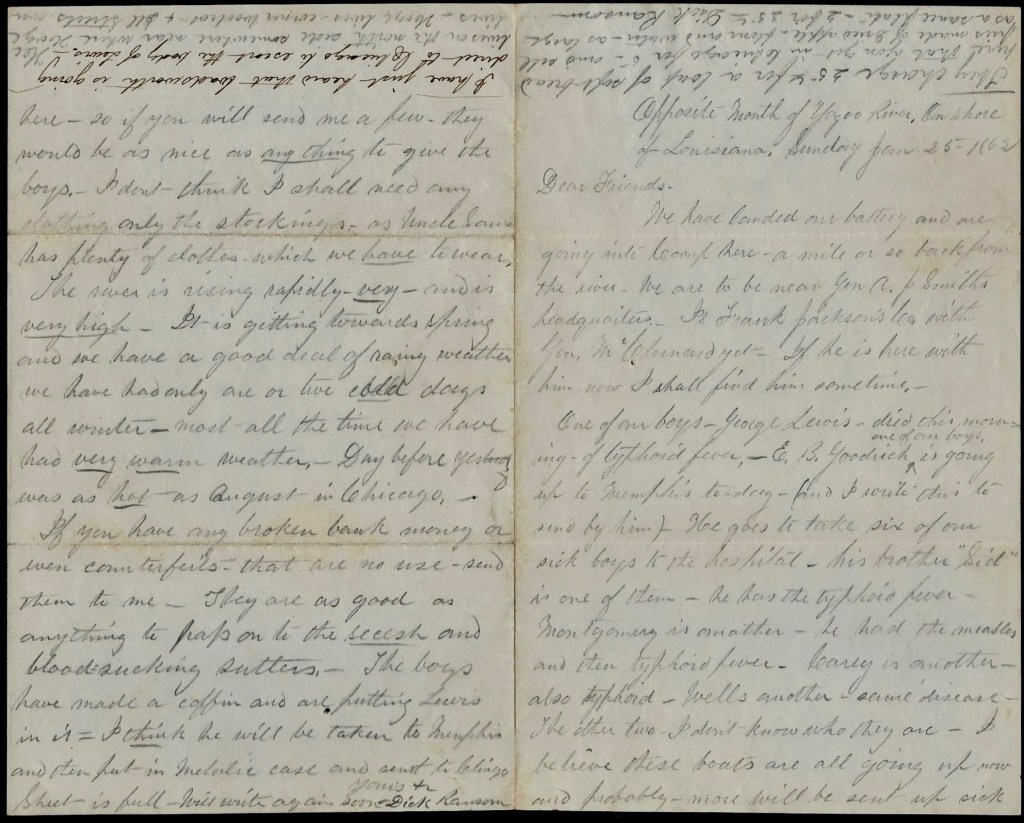 Opposite Mouth of Yazoo River, On shore
of Louisiana, Sunday Jan 25 - 1862
Dear Friends -
We have landed our battery and are
going into Camp here - a mile or so back from
the river - We are to be near Gen A. J Smiths
headquarters. - Is Frank Jackson's Co with
Gen. McClernard yet - If he is here with
him now I shall find him sometime. -
One of our boys - George Lewis - died this morn=
ing - of typhoid fever, - E. B. Goodrich ^one of our boys, is going
up to Memphis to-day - (and I write this to
send by him) - He goes to take six of our
sick boys to the hospital - his brother "Sid"
is one of them - he has the typhoid fever -
Montgomery is another - he had the measles
and then typhoid fever - Carey is another -
also typhoid - Wells another - same disease -
The other two I don't know who they are - I
believe these boats are all going up now
and probably - more will be sent up sick
here - so if you will send me a few - they
would be as nice as anything to give the
boys. - I dont think I shall need any
clothing only the stockings - as Uncle Sam
has plenty of clothes - which we have to wear,
The river is rising rapidly - very - and is
very high - It is getting towards spring
and we have a good deal of rainy weather
we have had only one or two cold days
all winter - most all the time we have
had very warm weather, - Day before yesterday
was as hot as August in Chicago. -
If you have any broken bank money or
even counterfeits - that are no use - send
them to me - They are as good as
anything to pass on to the secesh and
blood=sucking sutlers. - The boys
have made a coffin and are putting Lewis
in it = I think he will be taken to Memphis
and then put in Metalic case and sent to Chicago
Sheet is full - Will write again soon Yours &c Dick Ransom
They charge 25¢ for a loaf of soft bread
here that you get in Chicago for 5 - and sell
pies made of dried apple and water - as large
as a sauce plate - 2 for 25¢ Dick Ransom
I have just heard that is going
direct to Chicago to escort the body of Lewis - He
lives on the north side somewhere near where George
lives - George lives - corner Wolcott & Streets over